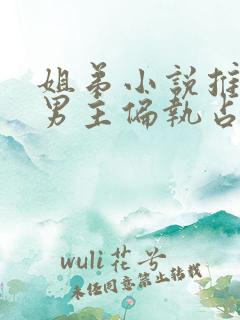 姐弟小说推
男主偏执占
wuli花兮
未经同意禁止转载